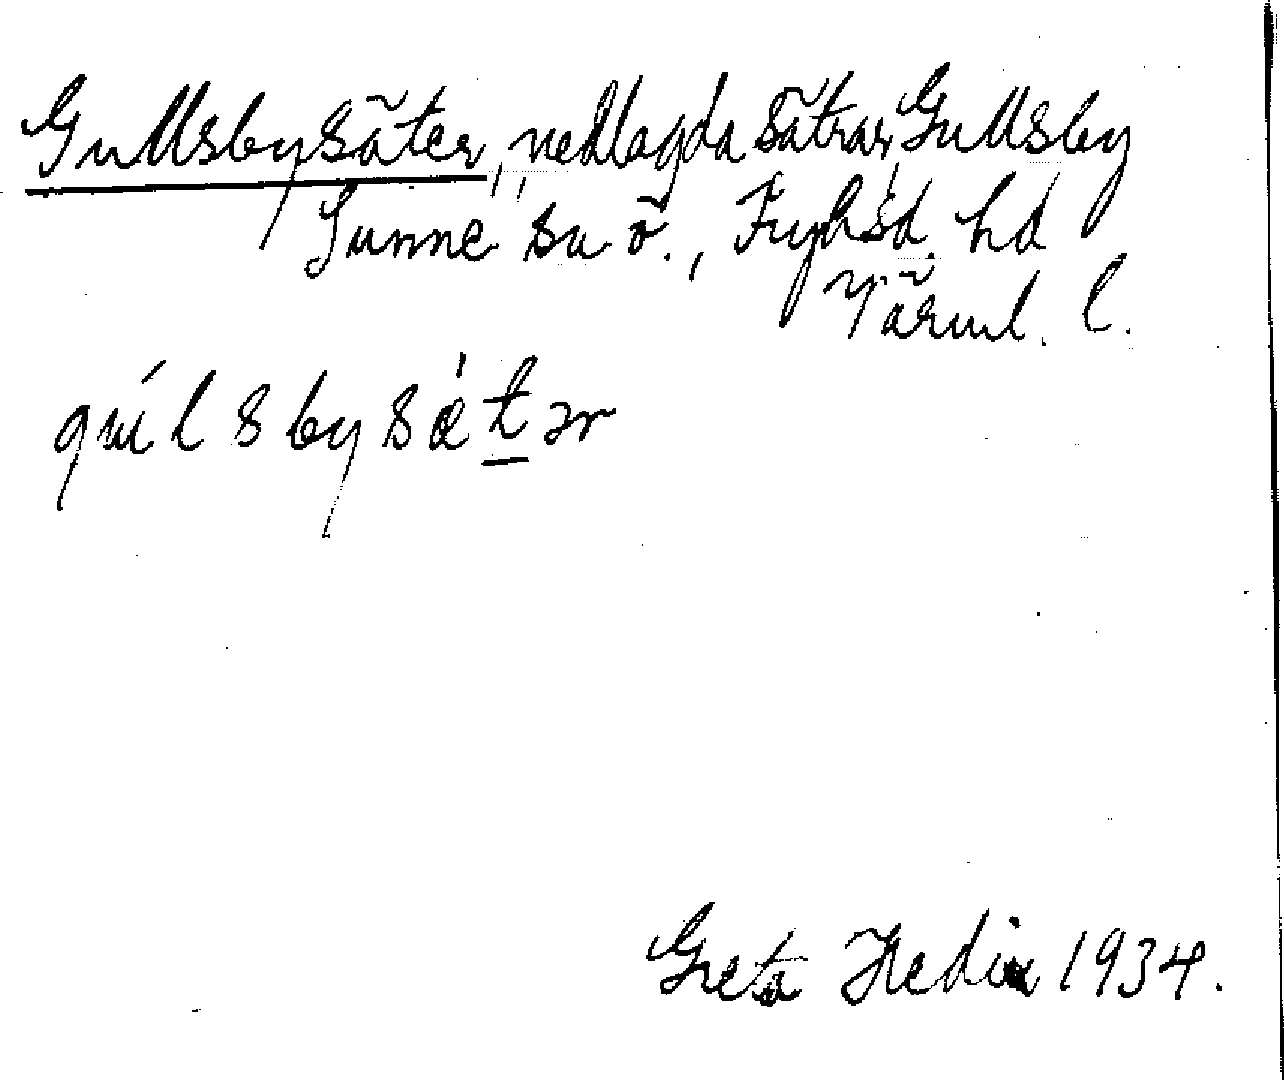 Gullsbysäter, nedlagda sätrar, Gullsby
Sunne sn ö., Fryksd. hd
Värml. l.
gúlsbysæ̀tər
Greta Hedin 1934.